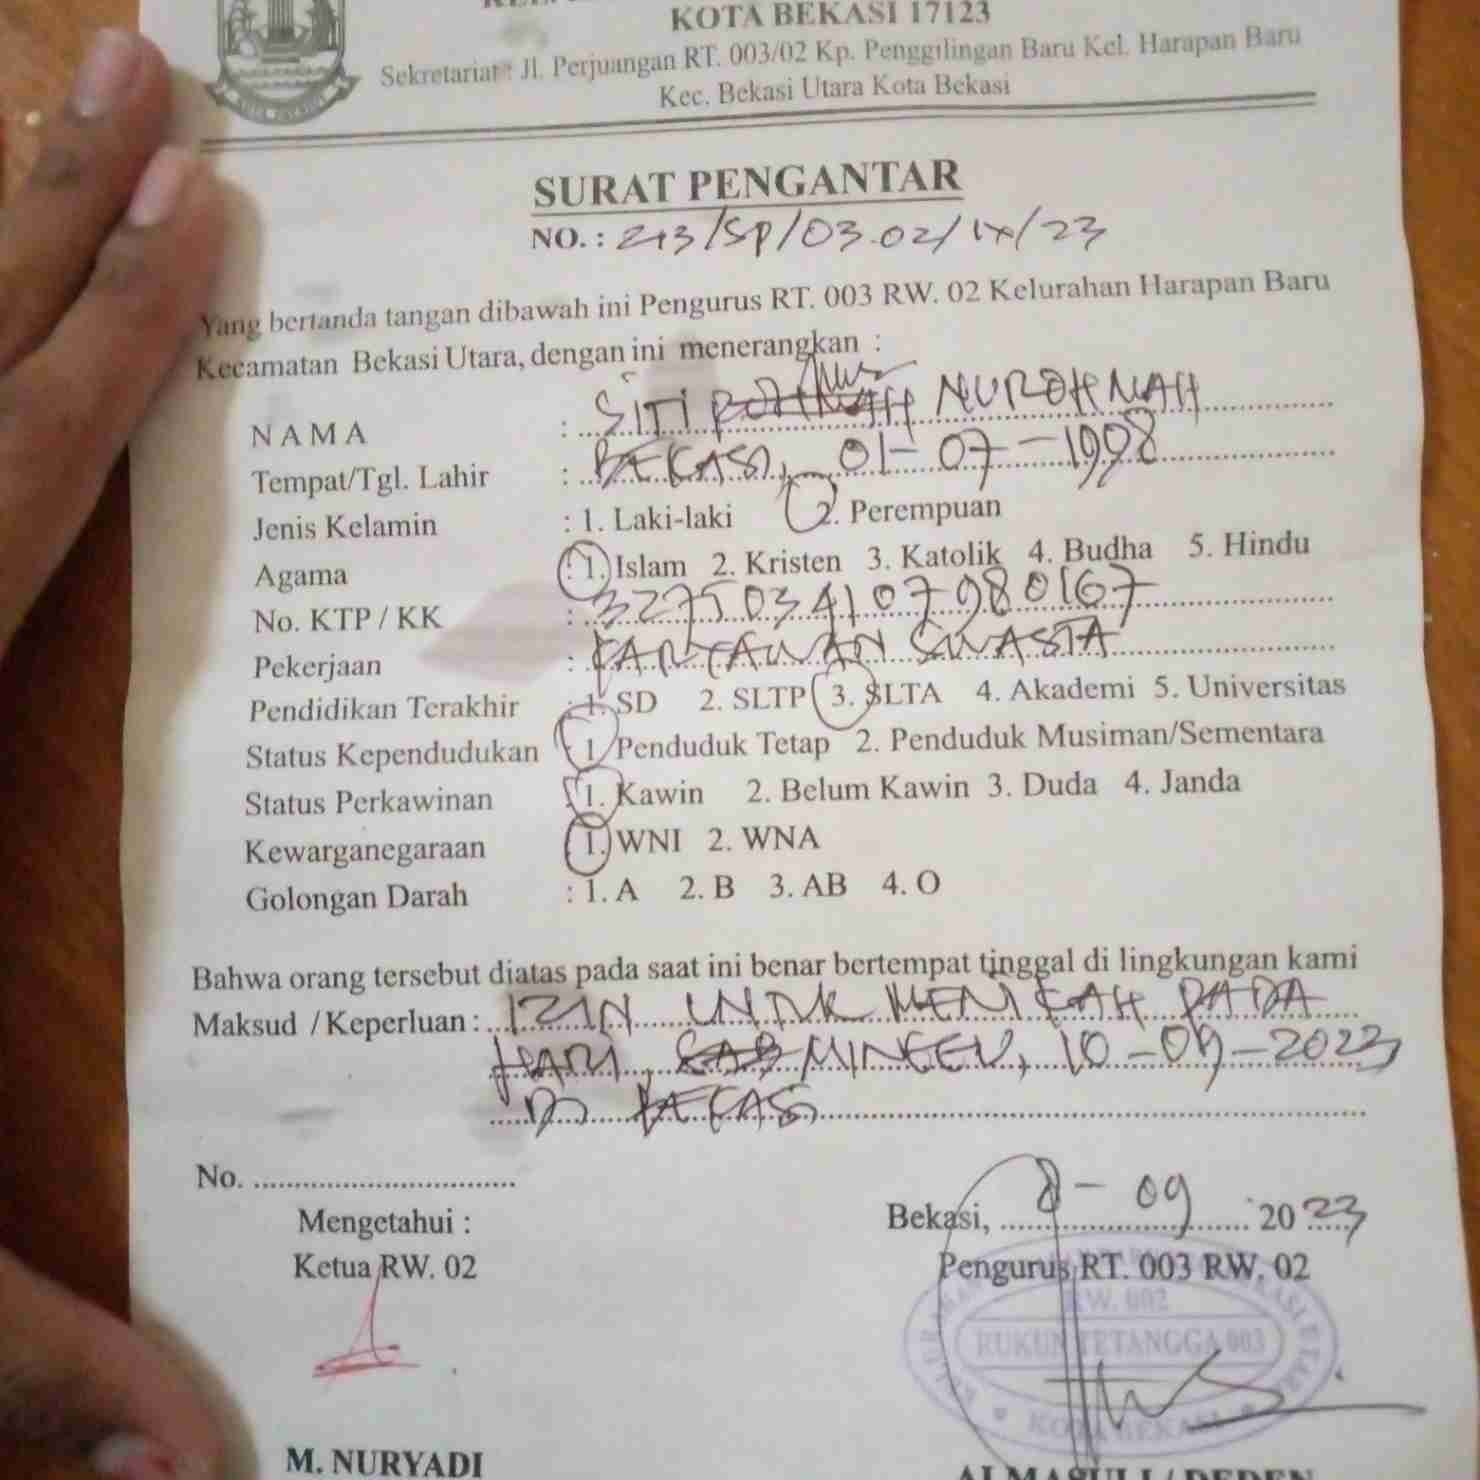 KOTA BEKASI 17123
Sekretariat : Jl. Perjuangan RT. 003/02 Kp. Penggilingan Baru Kel. Harapan Baru
Kec. Bekasi Utara Kota Bekasi
SURAT PENGANTAR
NO. : 213/SP/03.02/IX/23
Yang bertanda tangan dibawah ini Pengurus RT. 003 RW. 02 Kelurahan Harapan Baru
Kecamatan Bekasi Utara, dengan ini menerangkan :
NAMA : SITI NUROHMAH
Tempat/Tgl. Lahir : BEKASI, 01-07-1998
Jenis Kelamin : 1. Laki-laki 2. Perempuan
Agama : 1. Islam 2. Kristen 3. Katolik 4. Budha 5. Hindu
No. KTP / KK : 3275034107980167
Pekerjaan : KARYAWAN SWASTA
Pendidikan Terakhir : 1. SD 2. SLTP 3. SLTA 4. Akademi 5. Universitas
Status Kependudukan : 1. Penduduk Tetap 2. Penduduk Musiman/Sementara
Status Perkawinan : 1. Kawin 2. Belum Kawin 3. Duda 4. Janda
Kewarganegaraan : 1. WNI 2. WNA
Golongan Darah : 1. A 2. B 3. AB 4. O
Bahwa orang tersebut diatas pada saat ini benar bertempat tinggal di lingkungan kami
Maksud / Keperluan : IZIN UNTUK MENIKAH PADA
HARI, MINGGU, 10-09-2023
DI BEKASI
No. ..............................
Mengetahui :
Ketua RW. 02
M. NURYADI
Bekasi, 8-09 2023
Pengurus RT. 003 RW. 02
RW. 002
RUKUN TETANGGA 003
KOTA BEKASI